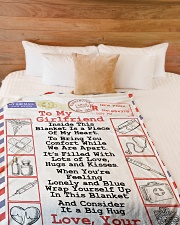 To My
Girlfriend
Inside This
Blanket Is a Piece
Of My Heart.
To Bring You
Comfort While
We Are Apart.
It's Filled With
Lots of Love,
Hugs and Kisses.
When You're
Feeling
Lonely and Blue
Wrap Yourself Up
In This Blanket
And Consider
It a Big Hug
Love, Your